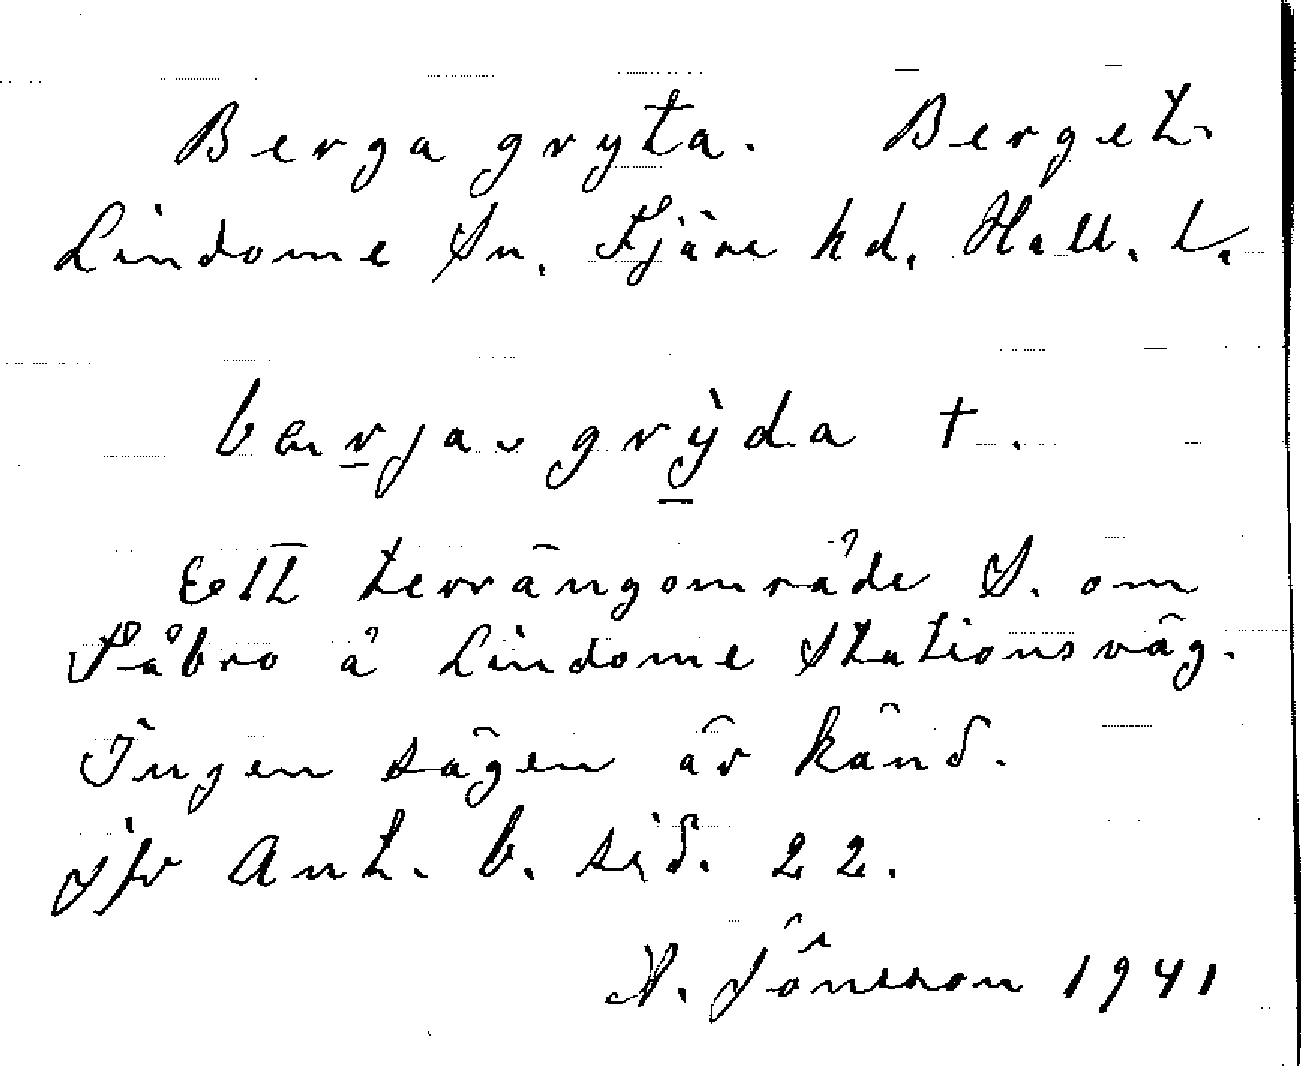 Berga gryta. Berget.
Lindome Sn. Fjäre hd. Hall. L.
bærja- grỳda +.
Ett terrängområde S. om
Såbro å Lindome Stationsväg.
Ingen sägen är känd.
jfr Ant. b. sid. 22.
N. Jönsson 1941